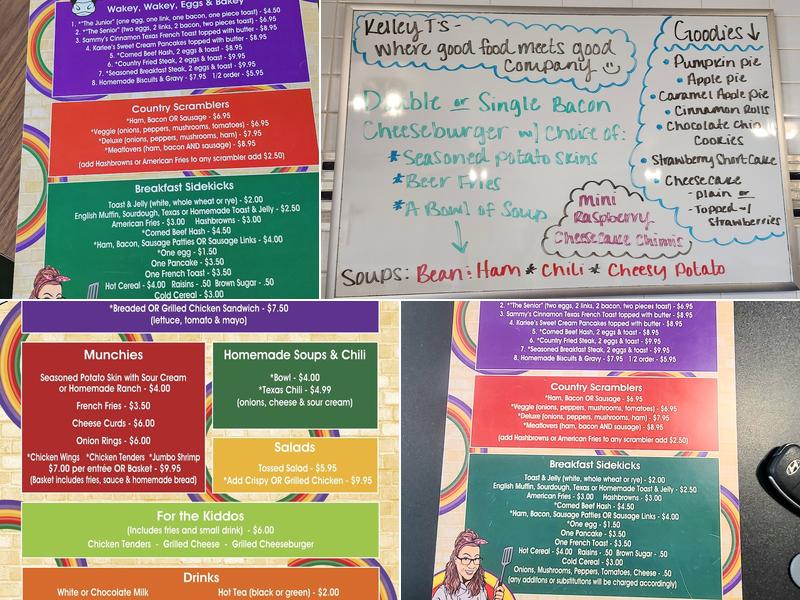 Wakey, Wakey, Eggs & Bakey
1. *"The Junior" (one egg, one link, one bacon, one piece toast) - $4.50
2. *"The Senior" (two eggs, 2 links, 2 bacon, two pieces toast) - $6.95
3. Sammy's Cinnamon Texas French Toast topped with butter - $8.95
4. Karlee's Sweet Cream Pancakes topped with butter - $8.95
5. *Corned Beef Hash, 2 eggs & toast - $8.95
6. *Country Fried Steak, 2 eggs & toast - $9.95
7. *Seasoned Breakfast Steak, 2 eggs & toast - $9.95
8. Homemade Biscuits & Gravy - $7.95 1/2 order - $5.95
Country Scramblers
*Ham, Bacon OR Sausage - $6.95
*Veggie (onions, peppers, mushrooms, tomatoes) - $6.95
*Deluxe (onions, peppers, mushrooms, ham) - $7.95
*Meatlovers (ham, bacon AND sausage) - $8.95
(add Hashbrowns or American Fries to any scrambler add $2.50)
Breakfast Sidekicks
Toast & Jelly (white, whole wheat or rye) - $2.00
English Muffin, Sourdough, Texas or Homemade Toast & Jelly - $2.50
American Fries - $3.00 Hashbrowns - $3.00
*Corned Beef Hash - $4.50
*Ham, Bacon, Sausage Patties OR Sausage Links - $4.00
*One egg - $1.50
One Pancake - $3.50
One French Toast - $3.50
Hot Cereal - $4.00 Raisins - .50 Brown Sugar - .50
Cold Cereal - $3.00
Kelley T's -
where good food meets good
company
Double or Single Bacon
Cheeseburger w/ choice of:
*Seasoned Potato Skins
*Beer Fries
*A Bowl of Soup
mini
Raspberry
Cheesecake Chimis
Soups: Bean & Ham * Chili * Cheesy Potato
Goodies ↓
• Pumpkin pie
• Apple pie
• Caramel Apple Pie
• Cinnamon Rolls
• Chocolate Chip
Cookies
• Strawberry Short Cake
• Cheesecake
- plain or
- Topped w/
Strawberries
*Breaded OR Grilled Chicken Sandwich - $7.50
(lettuce, tomato & mayo)
Munchies
Seasoned Potato Skin with Sour Cream
or Homemade Ranch - $4.00
French Fries - $3.50
Cheese Curds - $6.00
Onion Rings - $6.00
*Chicken Wings *Chicken Tenders *Jumbo Shrimp
$7.00 per entrée OR Basket - $9.95
(Basket includes fries, sauce & homemade bread)
Homemade Soups & Chili
*Bowl - $4.00
*Texas Chili - $4.99
(onions, cheese & sour cream)
Salads
Tossed Salad - $5.95
*Add Crispy OR Grilled Chicken - $9.95
For the Kiddos
(Includes fries and small drink) - $6.00
Chicken Tenders - Grilled Cheese - Grilled Cheeseburger
Drinks
White or Chocolate Milk Hot Tea (black or green) - $2.00
2. *"The Senior" (two eggs, 2 links, 2 bacon, two pieces toast) - $6.95
3. Sammy's Cinnamon Texas French Toast topped with butter - $8.95
4. Karlee's Sweet Cream Pancakes topped with butter - $8.95
5. *Corned Beef Hash, 2 eggs & toast - $8.95
6. *Country Fried Steak, 2 eggs & toast - $9.95
7. *Seasoned Breakfast Steak, 2 eggs & toast - $9.95
8. Homemade Biscuits & Gravy - $7.95 1/2 order - $5.95
Country Scramblers
*Ham, Bacon OR Sausage - $6.95
*Veggie (onions, peppers, mushrooms, tomatoes) - $6.95
*Deluxe (onions, peppers, mushrooms, ham) - $7.95
*Meatlovers (ham, bacon AND sausage) - $8.95
(add Hashbrowns or American Fries to any scrambler add $2.50)
Breakfast Sidekicks
Toast & Jelly (white, whole wheat or rye) - $2.00
English Muffin, Sourdough, Texas or Homemade Toast & Jelly - $2.50
American Fries - $3.00 Hashbrowns - $3.00
*Corned Beef Hash - $4.50
*Ham, Bacon, Sausage Patties OR Sausage Links - $4.00
*One egg - $1.50
One Pancake - $3.50
One French Toast - $3.50
Hot Cereal - $4.00 Raisins - .50 Brown Sugar - .50
Cold Cereal - $3.00
Onions, Mushrooms, Peppers, Tomatoes, Cheese - .50
(any additons or substitutions will be charged accordingly)